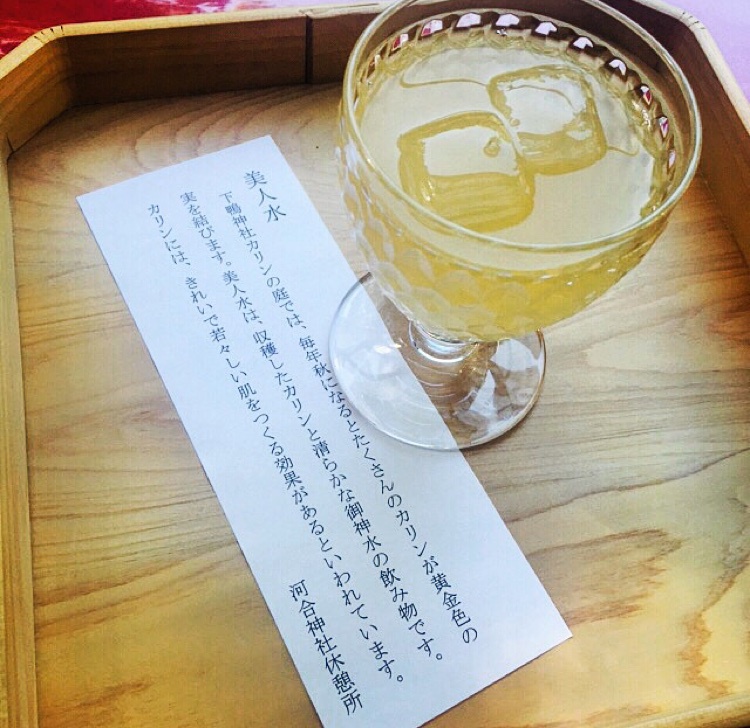 美人水
下鴨神社カリンの庭では、毎年秋になるとたくさんのカリンが黄金色の
実を結びます。美人水は、収穫したカリンと清らかな御神水の飲み物です。
カリンには、きれいで若々しい肌をつくる効果があるといわれています。
河合神社休憩所